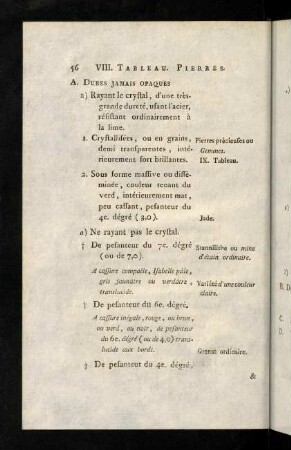 56 VIII. TABLEAU. PIERRES.
A. DURES JAMAIS OPAQUES
a) Rayant le crystal, d'une très-
grande dureté, usant l'acier,
résistant ordinairement à
la lime.
1. Crystallisées, ou en grains, Pierres précieuses ou
demi transparentes, inté- Gemmes.
rieurement fort brillantes. IX. Tableau.
2. Sous forme massive ou dissé-
minée, couleur tenant du
verd, intérieurement mat,
peu cassant, pesanteur du
4e. dégré (3,0). Jade.
a) Ne rayant pas le crystal.
† De pesanteur du 7e. dégré Stannilitre ou mine
(ou de 7,0). d'étain ordinaire.
A cassure compacte, Isabelle pâle,
gris jaunâtre ou verdâtre, Variété d'une couleur
translucide. claire.
† De pesanteur du 6e. dégré.
A cassure inégale, rouge, ou brun,
ou verd, ou noir, de pesanteur
du 6e. dégré (ou de 4,0) trans-
lucide aux bords. Grenat ordinaire.
† De pesanteur du 4e. dégré.
&